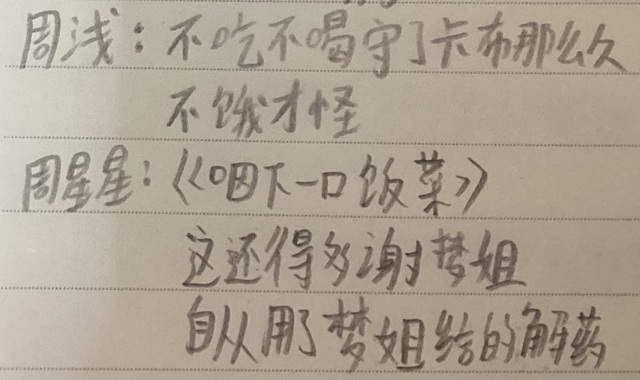 周浅：不吃不喝守了卡布那么久
不饿才怪
周星星：《咽下一口饭菜》
这还得多谢梦姐
自从用了梦姐给的解药